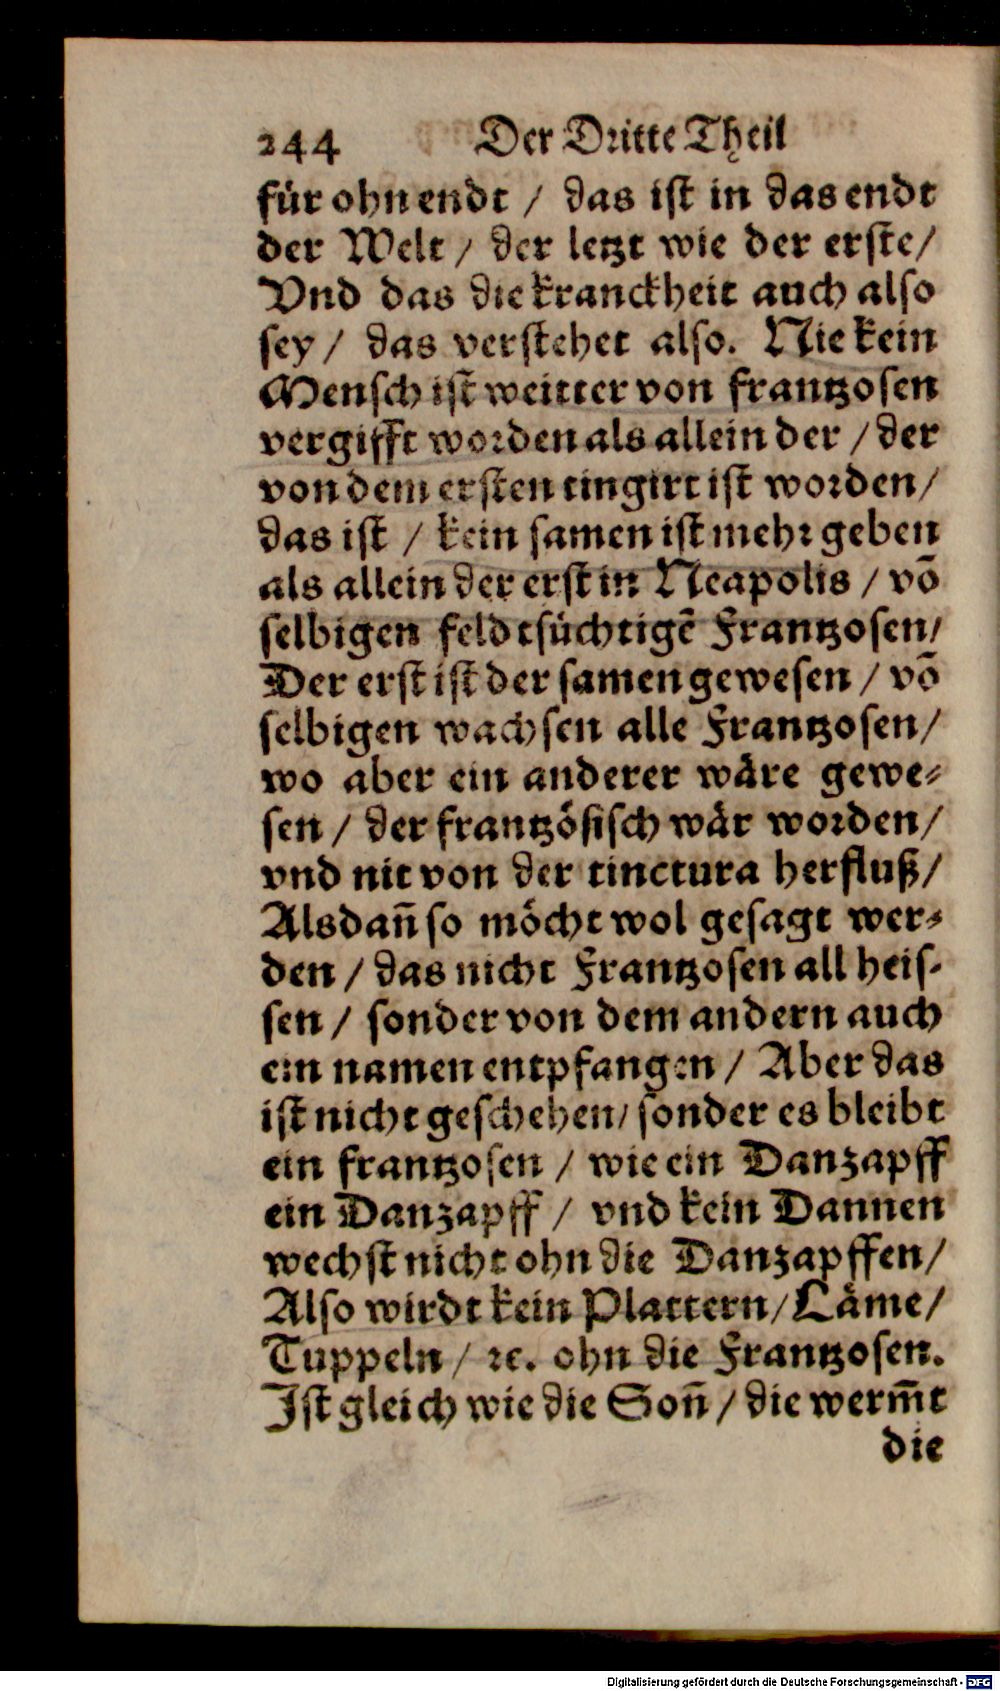 244 Der Dritte Theil
für ohn endt / das ist in das endt
der Welt / der letzt wie der erste/
Vnd das die kranckheit auch also
sey / das verstehet also. Nie kein
Mensch ist weitter von frantzosen
vergifft worden als allein der / der
von dem ersten tingirt ist worden/
das ist / kein samen ist mehr geben
als allein der erst in Neapolis / võ
selbigen feldtsüchtigẽ Frantzosen/
Der erst ist der samen gewesen / võ
selbigen wachsen alle Frantzosen/
wo aber ein anderer wäre gewe-
sen / der frantzösisch wär worden/
vnd nit von der tinctura herfluß/
Alsdañ so möcht wol gesagt wer-
den / das nicht Frantzosen all heis-
sen / sonder von dem andern auch
ein namen entpfangen / Aber das
ist nicht geschehen/ sonder es bleibt
ein frantzosen / wie ein Danzapff
ein Danzapff / vnd kein Dannen
wechst nicht ohn die Danzapffen/
Also wirdt kein Plattern/ Läme/
Tuppeln / ꝛc. ohn die Frantzosen.
Ist gleich wie die Soñ / die werm̃t
die
Digitalisierung gefördert durch die Deutsche Forschungsgemeinschaft - DFG